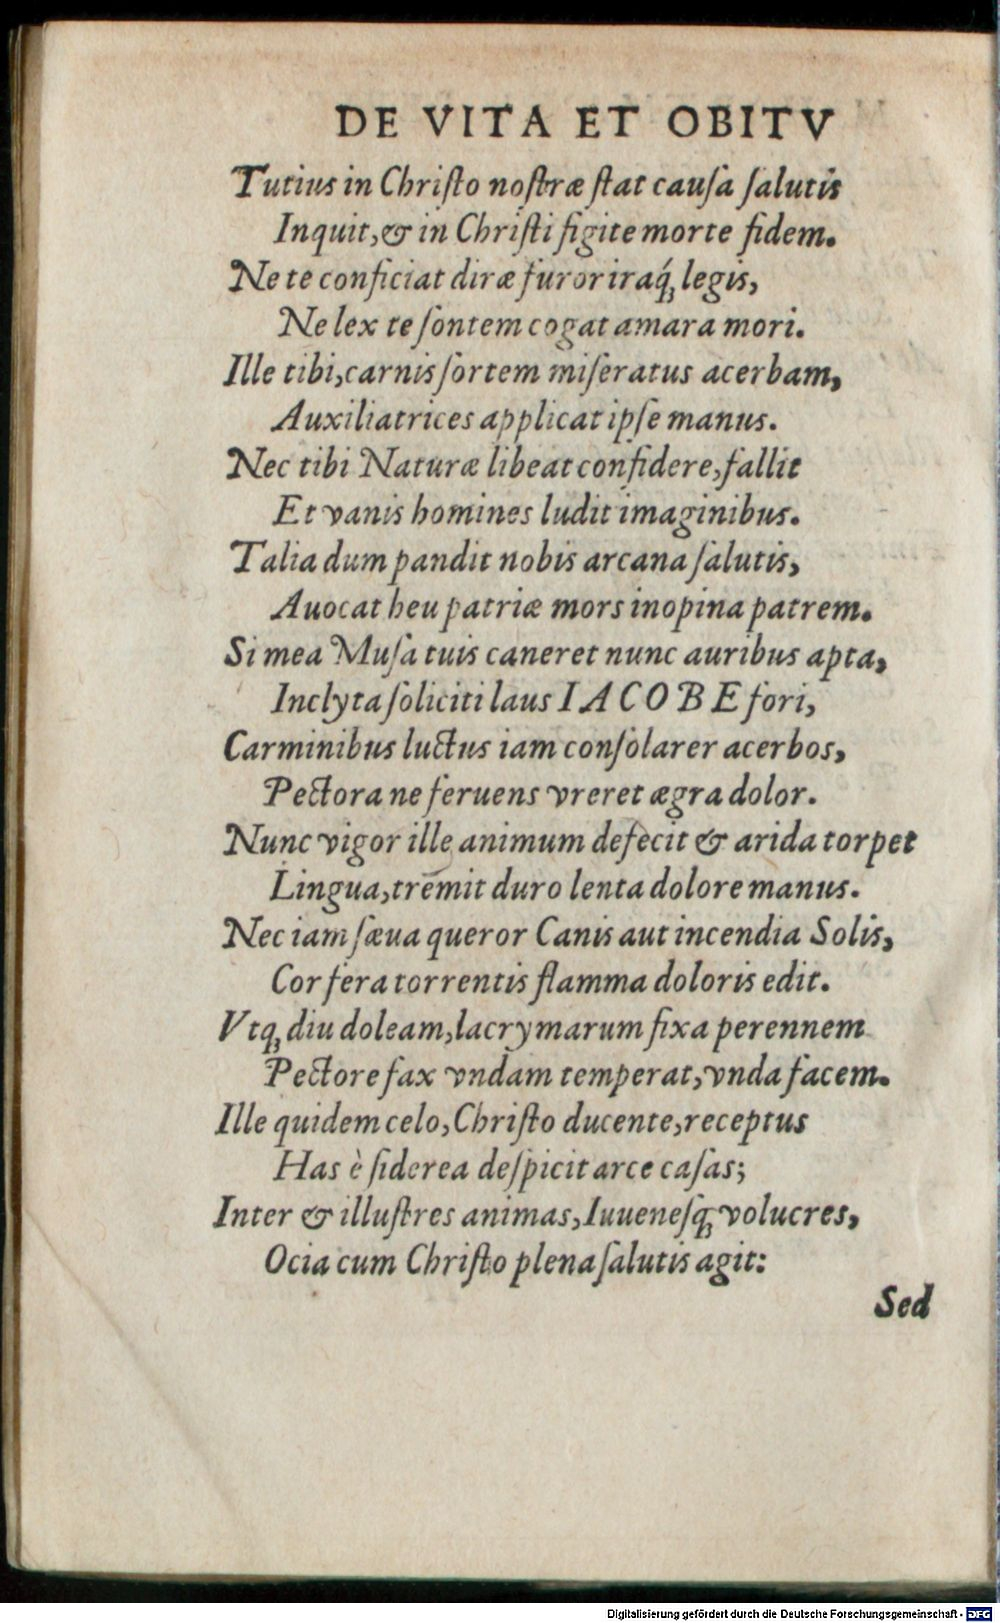 DE VITA ET OBITV
Tutius in Chriſto noſtræ ſtat cauſa ſalutis
Inquit, & in Chriſti figite morte fidem.
Ne te conficiat diræ furor iraq́; legis,
Ne lex te ſontem cogat amara mori.
Ille tibi, carnis ſortem miſeratus acerbam,
Auxiliatrices applicat ipſe manus.
Nec tibi Naturæ libeat confidere, fallit
Et vanis homines ludit imaginibus.
Talia dum pandit nobis arcana ſalutis,
Auocat heu patriæ mors inopina patrem.
Si mea Muſa tuis caneret nunc auribus apta,
Inclyta ſoliciti laus IACOBE fori,
Carminibus luctus iam conſolarer acerbos,
Pectora ne feruens vreret ægra dolor.
Nunc vigor ille animum defecit & arida torpet
Lingua, tremit duro lenta dolore manus.
Nec iam ſæua queror Canis aut incendia Solis,
Cor fera torrentis flamma doloris edit.
Vtq; diu doleam, lacrymarum fixa perennem
Pectore fax vndam temperat, vnda facem.
Ille quidem celo, Chriſto ducente, receptus
Has è ſiderea deſpicit arce caſas;
Inter & illuſtres animas, Iuueneſq; volucres,
Ocia cum Chriſto plena ſalutis agit:
Sed
Digitalisierung gefördert durch die Deutsche Forschungsgemeinschaft - DFG